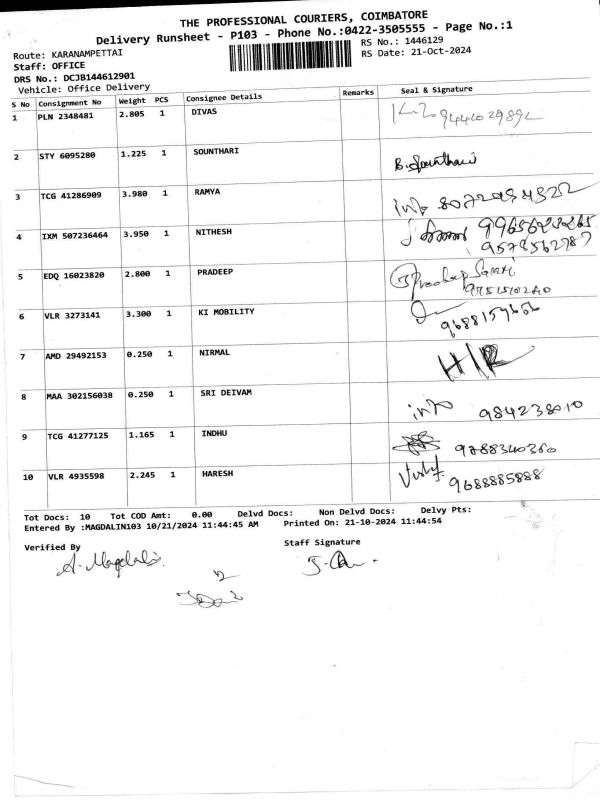 THE PROFESSIONAL COURIERS, COIMBATORE
Delivery Runsheet - P103 - Phone No.:0422-3505555 - Page No.:1
Route: KARANAMPETTAI RS No.: 1446129
Staff: OFFICE RS Date: 21-Oct-2024
DRS No.: DCJB144612901
Vehicle: Office Delivery
S No Consignment No Weight PCS Consignee Details Remarks Seal & Signature
1 PLN 2348481 2.805 1 DIVAS
2 STY 6095280 1.225 1 SOUNTHARI B. Sounthari
3 TCG 41286909 3.980 1 RAMYA info
4 IXM 507236464 3.950 1 NITHESH
9578562787
5 EDQ 16023820 2.800 1 PRADEEP
6 VLR 3273141 3.300 1 KI MOBILITY
7 AMD 29492153 0.250 1 NIRMAL
8 MAA 302156038 0.250 1 SRI DEIVAM info 984238010
9 TCG 41277125 1.165 1 INDHU 9788340360
10 VLR 4935598 2.245 1 HARESH 9688885888
Tot Docs: 10 Tot COD Amt: 0.00 Delvd Docs: Non Delvd Docs: Delvy Pts:
Entered By :MAGDALIN103 10/21/2024 11:44:45 AM Printed On: 21-10-2024 11:44:54
Verified By Staff Signature